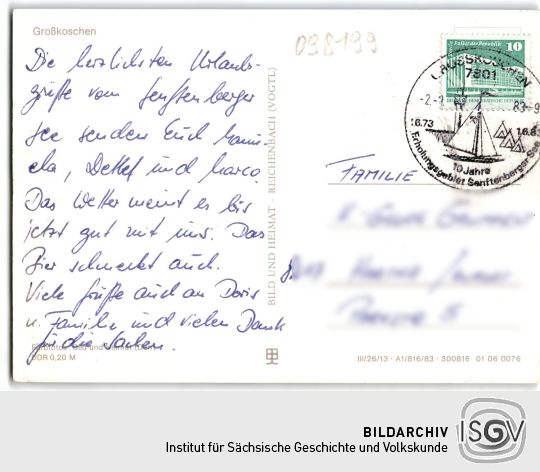 Großkoschen
Die herzlichsten Urlaubs-
grüße vom Senftenberger
See senden Euch Manu-
ela, Detlef und Marco.
Das Wetter meint es bis
jetzt gut mit uns. Das
Bier schmeckt auch.
Viele Grüße auch an Doris
u. Familie, und vielen Dank
für die Karten.
DDR 0,20 M
BILD UND HEIMAT · REICHENBACH (VOGTL)
038199
10
GROSSKOSCHEN
7801
16.73
10 Jahre
Erholungsgebiet Senftenberger See
FAMILIE
III/26/13 · A1/816/83 · 300816 01 06 0076
BILDARCHIV
ISGV
Institut für Sächsische Geschichte und Volkskunde